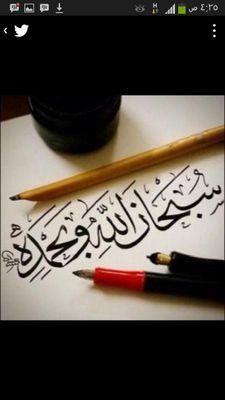 ٤:٣٥ ص
سُبْحَانَ اللَّهِ وَبِحَمْدِهِ